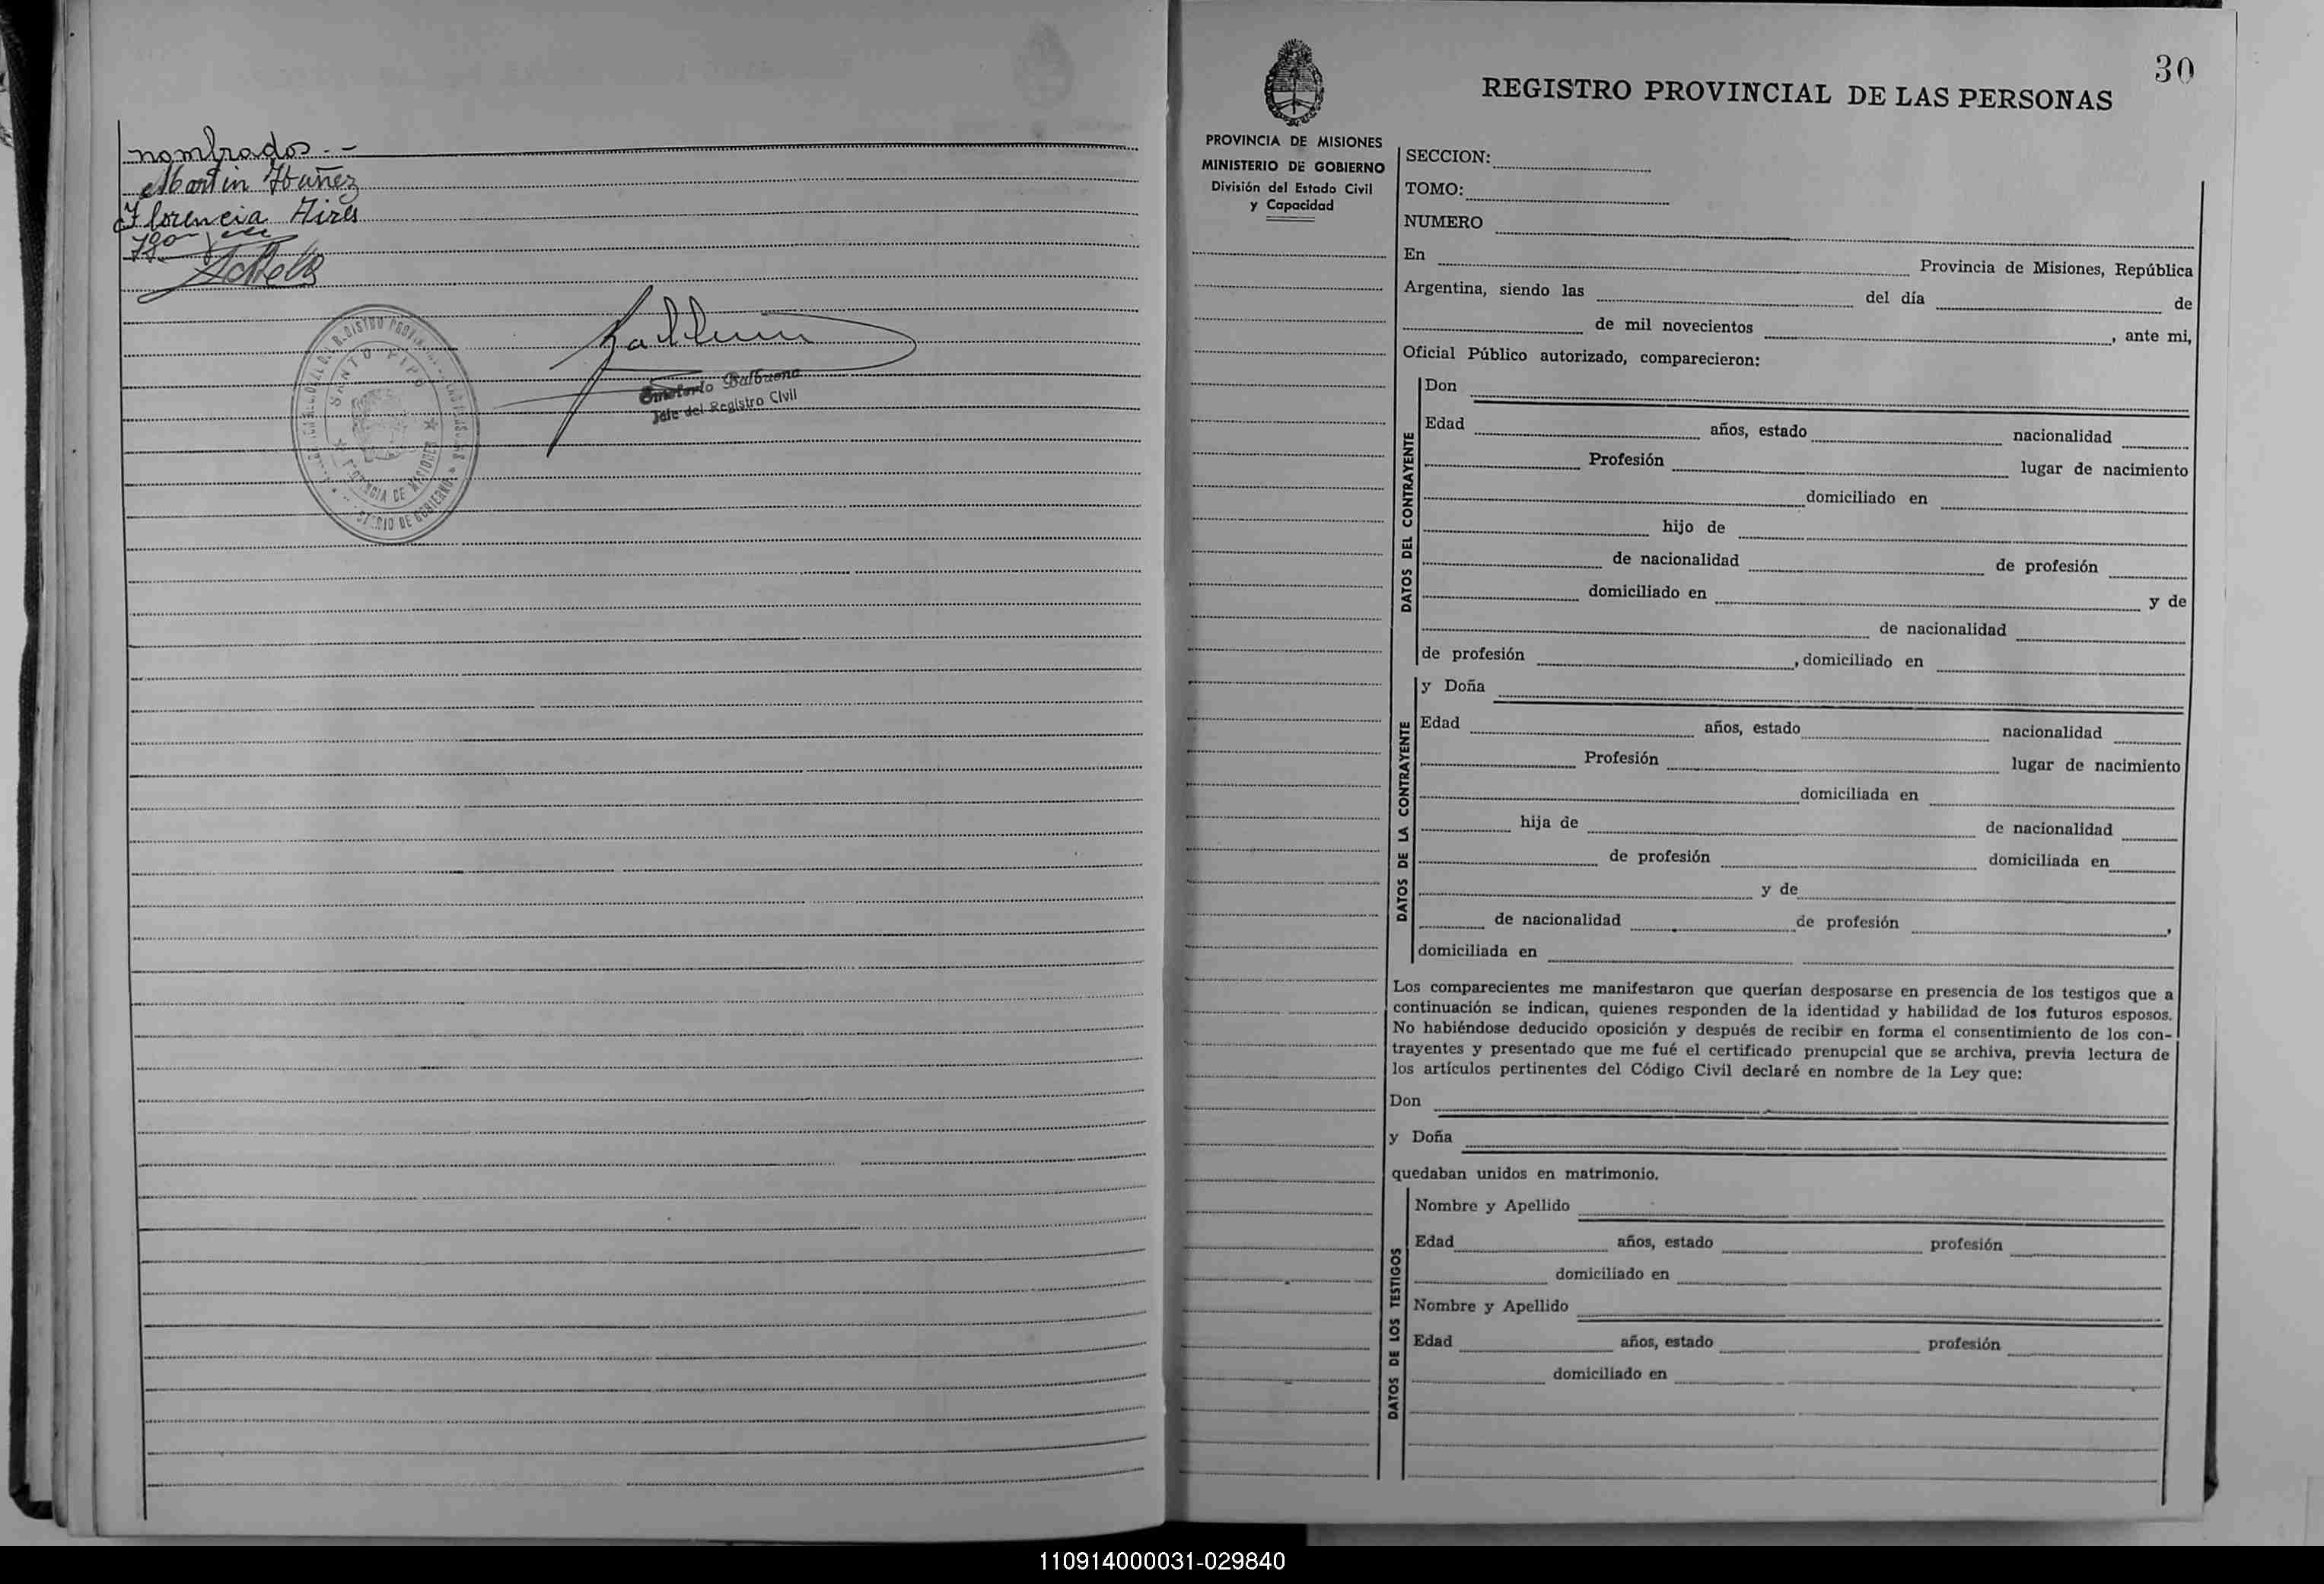 nombrados.-
Martin Ibañez
Florencia Aires
REGISTRO PROVINCIAL
SANTO PIPO
PROVINCIA DE MISIONES
MINISTERIO DE GOBIERNO
Emeterio Balbuena
Jefe del Registro Civil
30
REGISTRO PROVINCIAL DE LAS PERSONAS
PROVINCIA DE MISIONES
MINISTERIO DE GOBIERNO
División del Estado Civil
y Capacidad
SECCION:
TOMO:
NUMERO
En Provincia de Misiones, República
Argentina, siendo las del día de
de mil novecientos , ante mi,
Oficial Público autorizado, comparecieron:
DATOS DEL CONTRAYENTE
Don
Edad años, estado nacionalidad
Profesión lugar de nacimiento
domiciliado en
hijo de
de nacionalidad de profesión
domiciliado en y de
de nacionalidad
de profesión , domiciliado en
DATOS DE LA CONTRAYENTE
y Doña
Edad años, estado nacionalidad
Profesión lugar de nacimiento
domiciliada en
hija de de nacionalidad
de profesión domiciliada en
y de
de nacionalidad de profesión ,
domiciliada en
Los comparecientes me manifestaron que querían desposarse en presencia de los testigos que a
continuación se indican, quienes responden de la identidad y habilidad de los futuros esposos.
No habiéndose deducido oposición y después de recibir en forma el consentimiento de los con-
trayentes y presentado que me fué el certificado prenupcial que se archiva, previa lectura de
los artículos pertinentes del Código Civil declaré en nombre de la Ley que:
Don
y Doña
quedaban unidos en matrimonio.
DATOS DE LOS TESTIGOS
Nombre y Apellido
Edad años, estado profesión
domiciliado en
Nombre y Apellido
Edad años, estado profesión
domiciliado en
110914000031-029840